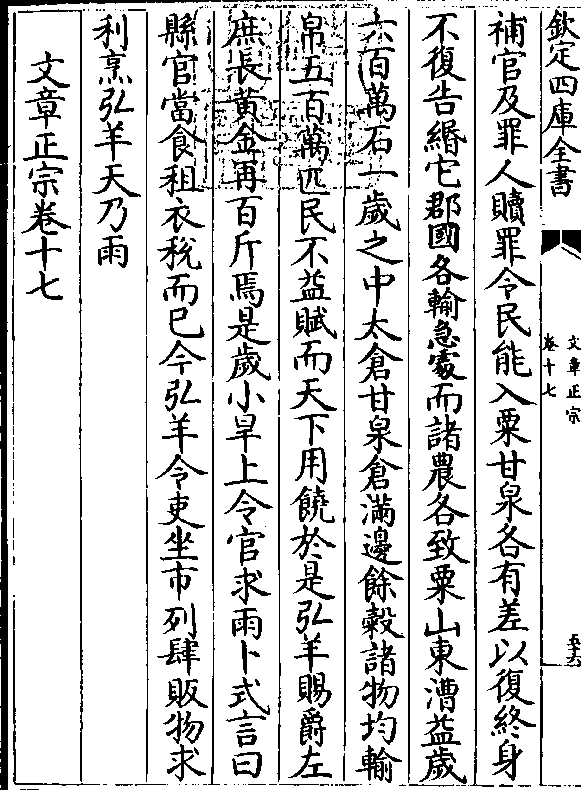 欽定四庫全書
文章正宗
卷十七
補官及罪人贖罪令民能入粟甘泉各有差以復終身
不復告緡它郡國各輸急處而諸農各致粟山東漕益歲
六百萬石一歲之中太倉甘泉倉滿邊餘穀諸物均輸
帛五百萬匹民不益賦而天下用饒於是弘羊賜爵左
庶長黃金再百斤焉是歲小旱上令官求雨卜式言曰
縣官當食租衣稅而已今弘羊令吏坐市列肆販物求
利烹弘羊天乃雨
文章正宗卷十七